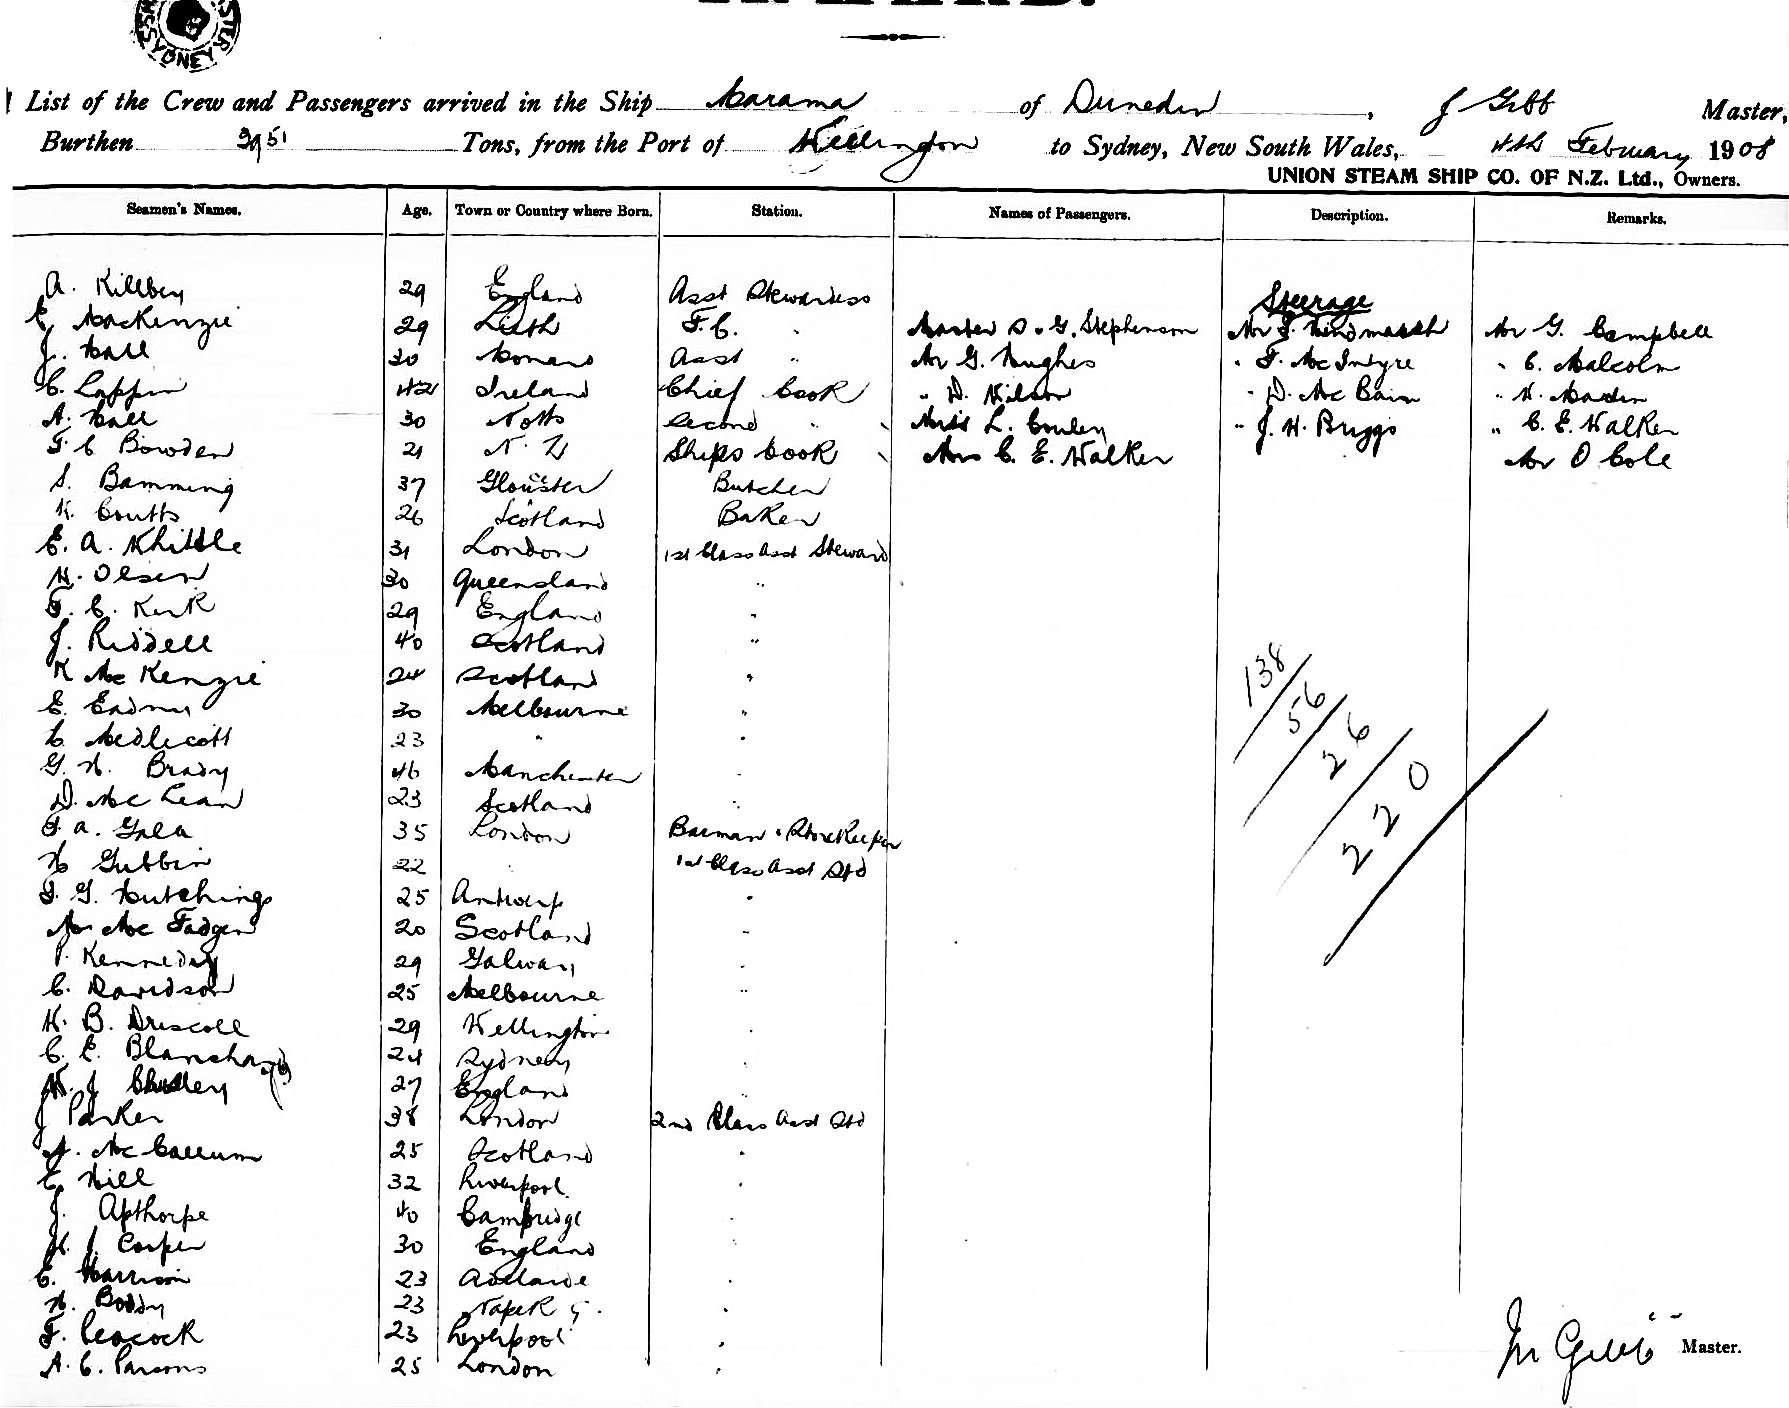 SYDNEY
List of the Crew and Passengers arrived in the Ship Marama of Dunedin, J Gibb Master,
Burthen 3951 Tons, from the Port of Wellington to Sydney, New South Wales, 4th February 1908
UNION STEAM SHIP CO. OF N.Z. Ltd., Owners.
Seamen's Names. Age. Town or Country where Born. Station. Names of Passengers. Description. Remarks.
A. Killbey 29 England Asst Stewardess
Steerage
E. MacKenzie 29 Leith F.C. " Master D. G. Stephenson Mr F. Hindmarsh Mr G. Campbell
J. Hall 30 Asst " Mr G. Hughes " F. McIntyre " C. Malcolm
C. Lappin 42 Ireland Chief Cook " D. Wilson " D. McBain " H. Martin
A. Hall 30 Notts Second " Miss L. Conley " J. H. Briggs " C. E. Walker
F C Bowden 21 N. Z Ships Cook Mrs C. E. Walker Mr O Cole
S. Bamming 37 Glouster Butcher
K. Coutts 26 Scotland Baker
E. A. Whittle 31 London 1st Class Asst Steward
H. Olsen 30 Queensland "
F. C. Kirk 29 England "
J. Riddell 40 Scotland "
K McKenzie 24 Scotland "
E. Eadny 30 Melbourne "
C Medlecott 23 " "
G. H. Brady 46 Manchester "
D. McLean 23 Scotland "
F A. Gala 35 London Barman & Storekeeper
H Gubbin 22 " 1st Class Asst Std
F. G. Hutchings 25 Antwerp "
M McFadgen 20 Scotland "
P Kennedy 29 Galway "
C. Davidson 25 Melbourne "
H. B. Driscoll 29 Wellington "
C. E. Blanchard 24 Sydney "
H. J Chudley 27 England "
J Parker 38 London 2nd Class Asst Std
A. McCallum 25 Scotland "
E. Hill 32 Liverpool "
J. Apthorpe 40 Cambridge "
H. J. Cooper 30 England "
E. Harrison 23 Adelaide "
H. Boddy 23 "
F. Peacock 23 Liverpool "
A. C. Parsons 25 London "
138
56
26
220
J Gibb Master.